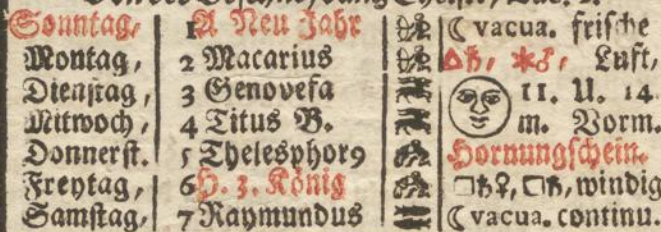 Sonntag, 1 A Neu Jahr ☾ vacua. frische
Montag, 2 Macarius △♄, ✶♂, Luft,
Dienstag, 3 Genovefa 11. U. 14
Mitwoch, 4 Titus B. m. Vorm.
Donnerst. 5 Thelesphor9 Hornungschein.
Freytag, 6 H. 3. König □♄♀, □♄, windig
Samstag, 7 Raymundus ☾ vacua. continu.